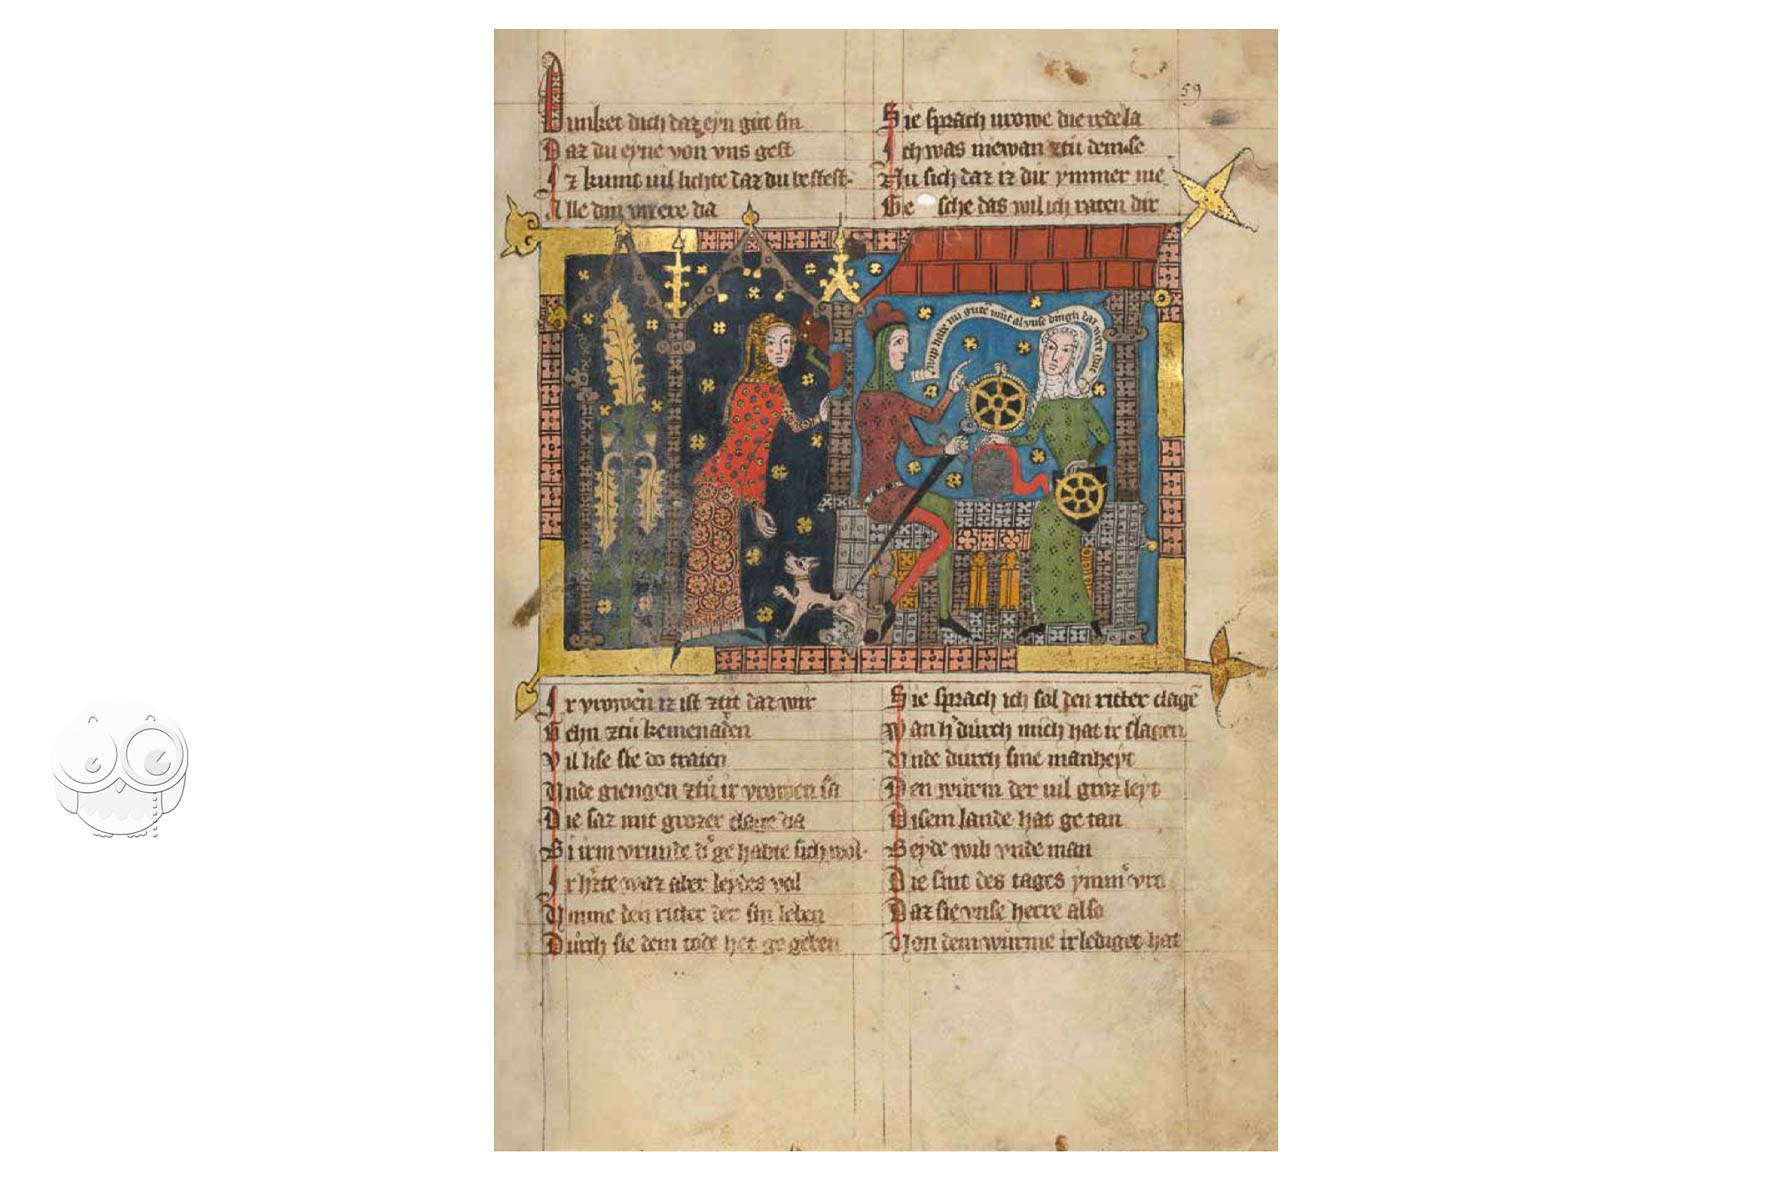 59
Dunket dich daz eyn gut sin
Daz du eyne von vns gest
Iz kumt uil lichte daz du bestest
Alle din vnere da
Sie sprach urowe die rede la
Ich was niewan ztu dem se
Nu sich daz iz dir ymmer me
Ge sche das wil ich raten dir
vrowe habe nu gute mut al vnse dingh daz wert gut
Ir vrowen iz ist ztit daz wir
Gehn ztu kemenaden
Vil lise sie do traten
Vnde giengen ztu ir vrowen sa
Die saz mit grozer clage da
Bi irm vrunde der ge habte sich wol
Ir hrte waz aber leydes vol
Vmme den ritter der sin leben
Durch sie dem tode het ge geben
Sie sprach ich sol den ritter clagē
Wan h' durch mich hat ir slagen
Vnde durch sine manheyt
Den wurm der uil groz leyt
Disem lande hat ge tan
Beyde wib vnde man
Die sint des tages ymm' vro
Daz sie vnse herre also
Von dem wurme irlediget hat